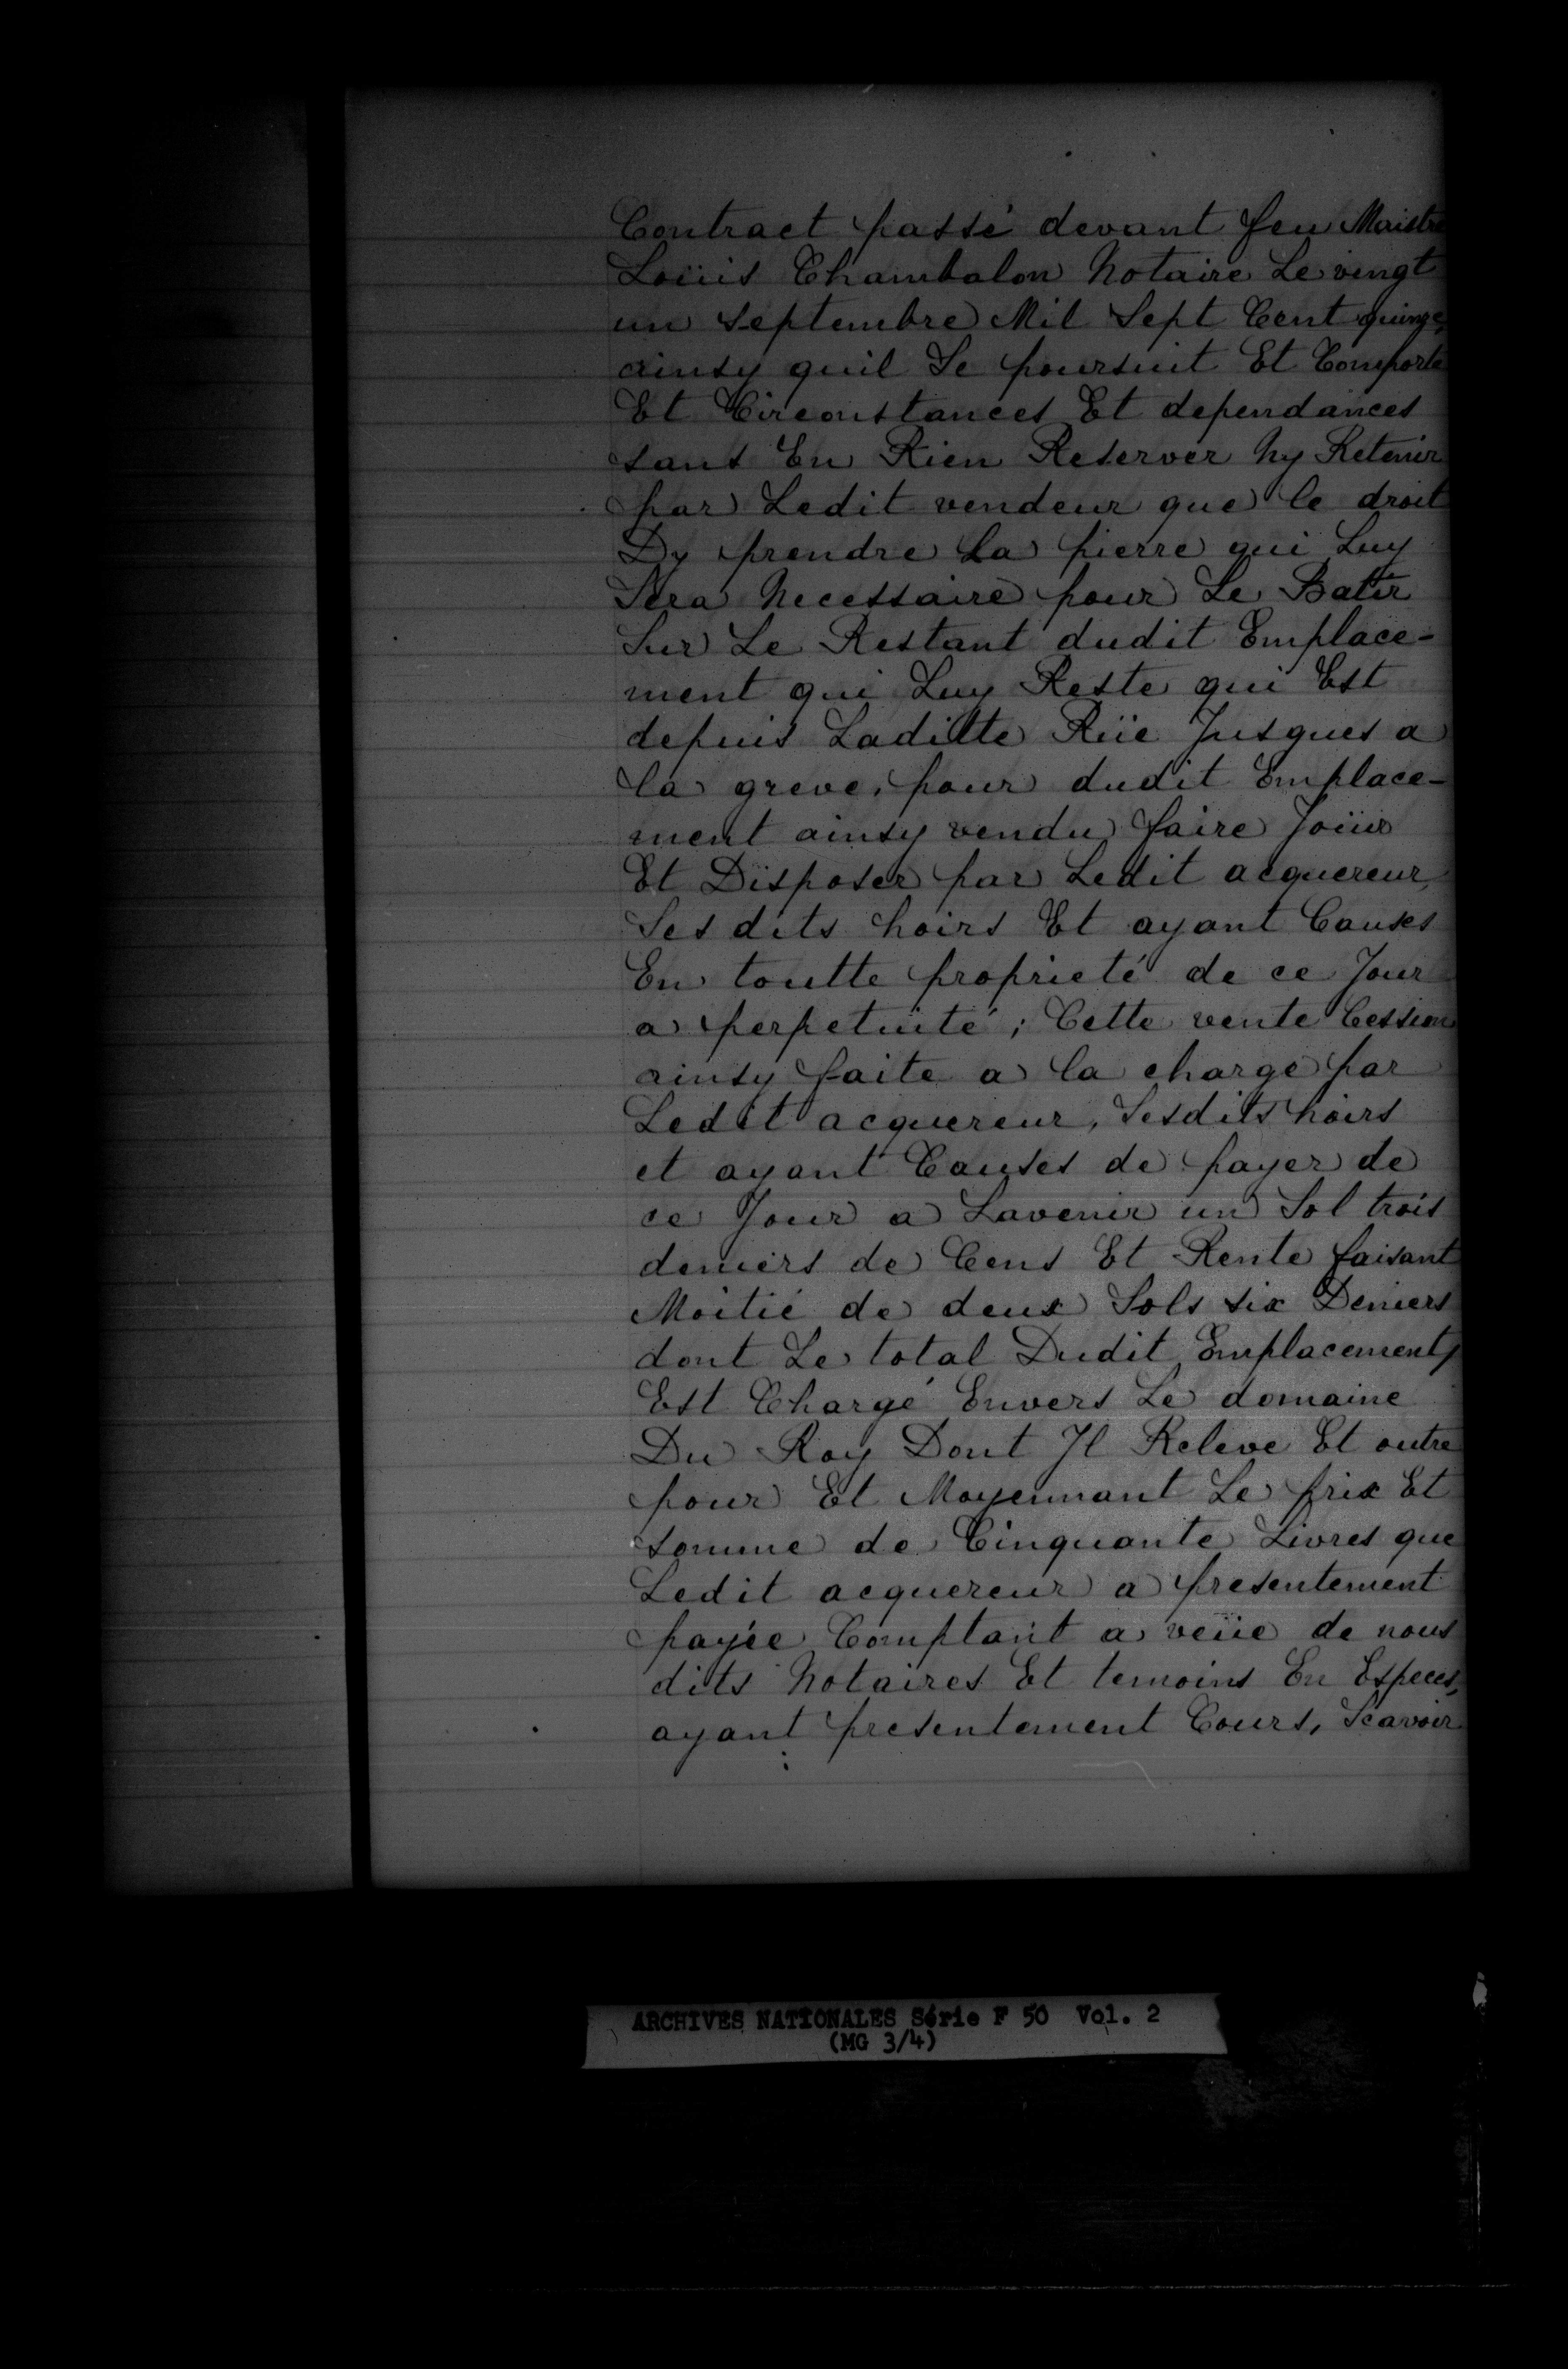 Contract passé devant feu Maistre
Loüis Chambalon Notaire Le vingt
un Septembre Mil Sept Cent quinze,
ainsy quil Se poursuit Et Comporte
Et Circonstances Et dependances
sans En Rien Reserver Ny Retenir
par Ledit vendeur que le droit
Dy prendre La pierre qui Luy
Sera Necessaire pour Le Batir
Sur Le Restant dudit Emplace-
ment qui Luy Reste qui Est
depuis Laditte Rüe Jusques a
la greve, pour dudit Emplace-
ment ainsy vendu faire Joüir
Et Disposer par Ledit acquereur,
Ses dits hoirs Et ayant Causes
En toutte proprieté de ce Jour
a perpetuité ; Cette vente Cession
ainsy faite a la charge par
Ledit acquereur, Sesdits hoirs
et ayant Causes de payer de
ce Jour a Lavenir un Sol trois
deniers de Cens Et Rente faisant
Moitié de deux Sols six Deniers
dont Le total Dudit Emplacement,
Est Chargé Envers Le domaine
Du Roy Dont Il Releve Et outre
pour Et Moyennant Le prix Et
somme de Cinquante Livres que
Ledit acquereur a presentement
payée Comptant a veüe de nous
dits Notaires Et temoins En Especes,
ayant presentement Cours, Scavoir
ARCHIVES NATIONALES Série F 50 Vol. 2
(MG 3/4)